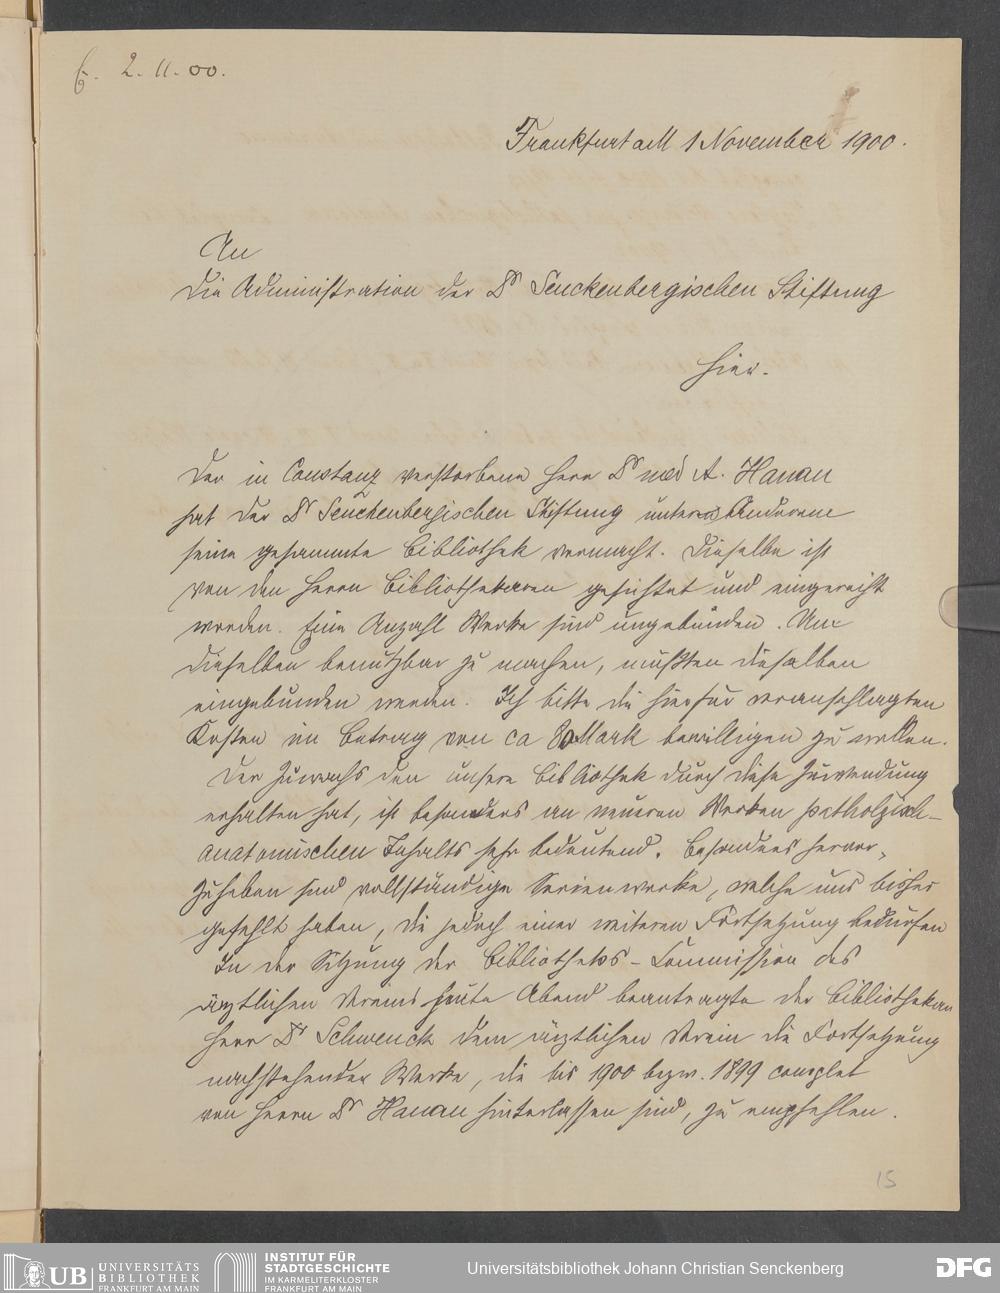 E. 2. 11. 00.
Frankfurt a M 1 November 1900.
An
die Administration der Dr Senckenbergischen Stiftung
hier.
Der in Constanz verstorbene Herr Dr med A. Hanau
hat der Dr Senckenbergischen Stiftung unter Anderem
seine gesammte Bibliothek vermacht. Dieselbe ist
von den Herrn Bibliothekaren gesichtet und eingereiht
worden. Eine Anzahl Werke sind ungebunden. Um
dieselben benutzbar zu machen, müßten dieselben
eingebunden werden. Ich bitte die hierfür veranschlagten
Kosten im Betrag von ca 80 Mark bewilligen zu wollen.
Der Zuwachs den unsere Bibliothek durch diese Zuwendung
erhalten hat, ist besonders an neueren Werken patholgisch-
anatomischen Inhalts sehr bedeutend. Besonders hervor-
zuheben sind vollständige Serienwerke, welche uns bisher
gefehlt haben, die jedoch einer weiteren Fortsetzung bedürfen
In der Sitzung der Bibliotheks-Commission des
ärztlichen Vereins heute Abend beantragte der Bibliothekar
Herr Dr Schwenck dem ärztlichen Verein die Fortsetzung
nachstehender Werke, die bis 1900 bezw. 1899 complet
von Herrn Dr Hanau hinterlassen sind, zu empfehlen.
15
UB UNIVERSITÄTS
BIBLIOTHEK
FRANKFURT AM MAIN
INSTITUT FÜR
STADTGESCHICHTE
IM KARMELITERKLOSTER
FRANKFURT AM MAIN
Universitätsbibliothek Johann Christian Senckenberg
DFG